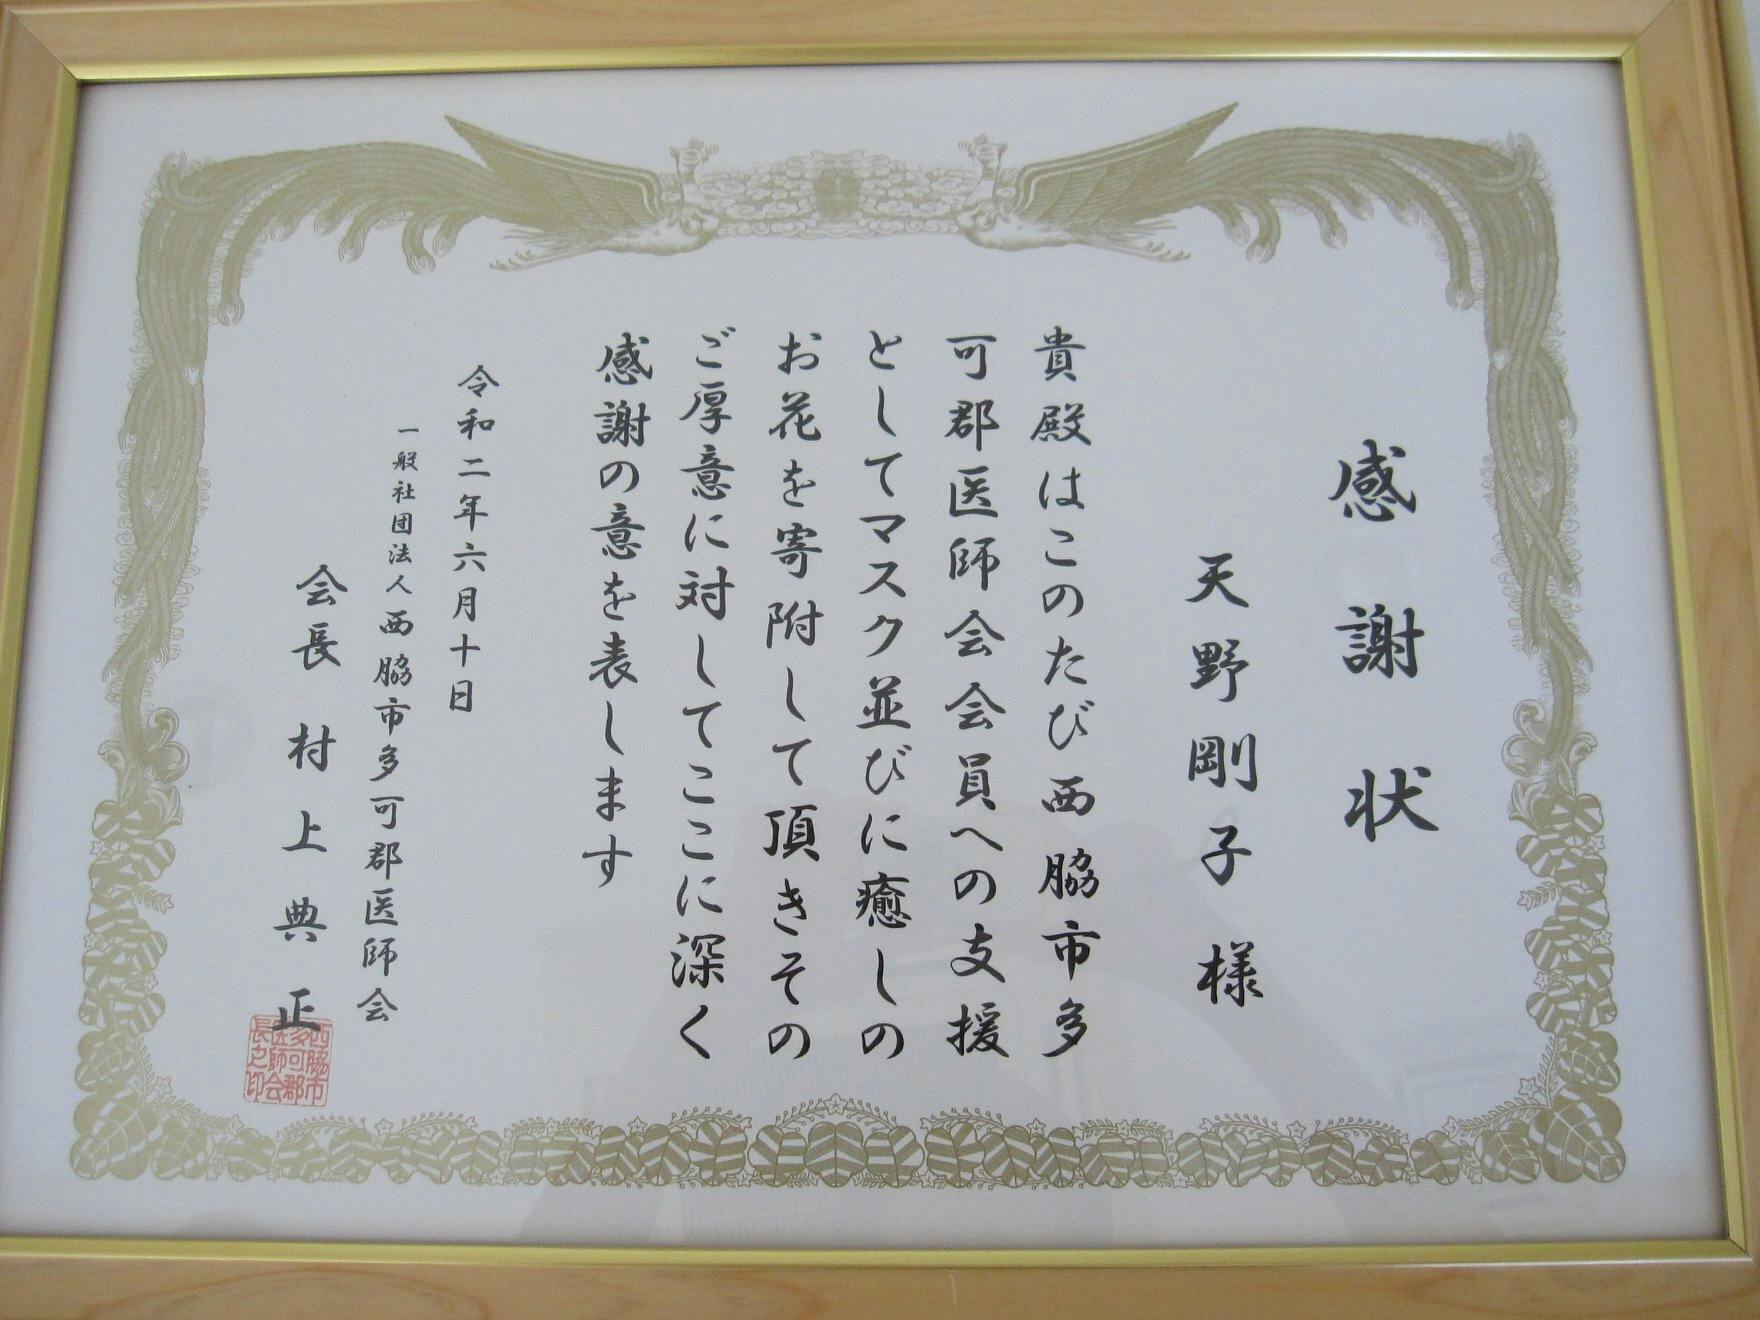 感謝状
天野剛子様
貴殿はこのたび西脇市多
可郡医師会会員への支援
としてマスク並びに癒しの
お花を寄附して頂きその
ご厚意に対してここに深く
感謝の意を表します
令和二年六月十日
一般社団法人西脇市多可郡医師会
会長 村上典正
西脇市
多可郡
医師会
長之印